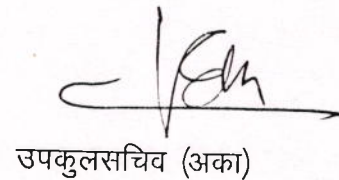 उपकुलसचिव (अका)